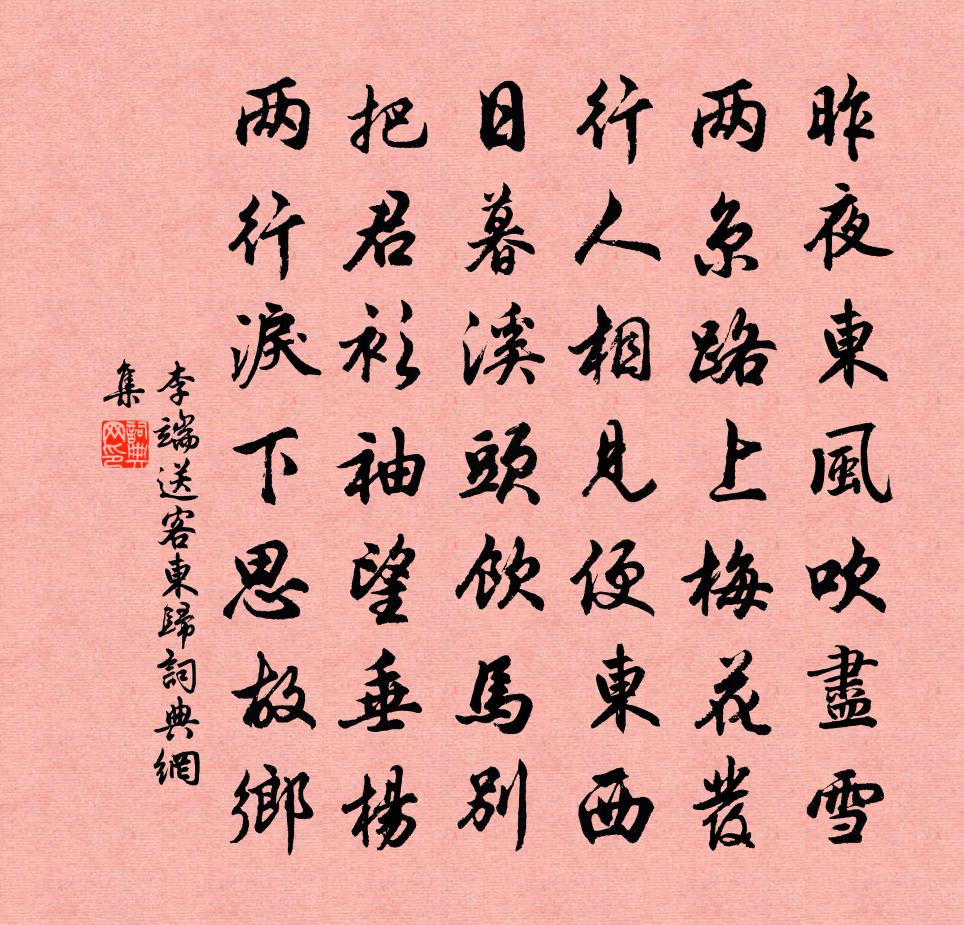 昨夜東風吹盡雪
两京路上梅花發
行人相見便東西
日暮溪頭飲馬别
把君衫袖望垂楊
两行淚下思故鄉
李端送客東歸詞典網
集
詞典
网印